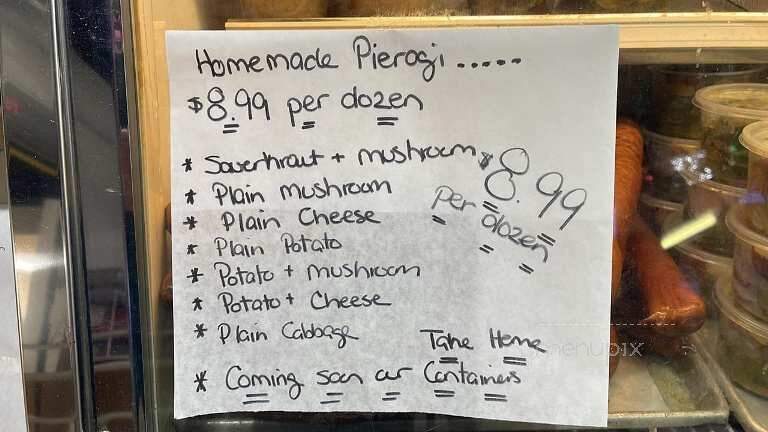 Homemade Pierogi .....
$8.99 per dozen
* Saverkraut + mushroom
* Plain mushroom
* Plain Cheese
* Plain Potato
* Potato + mushroom
* Potato + Cheese
* Plain Cabbage
$8.99
per dozen
Take Home
* Coming soon our Containers
menupix